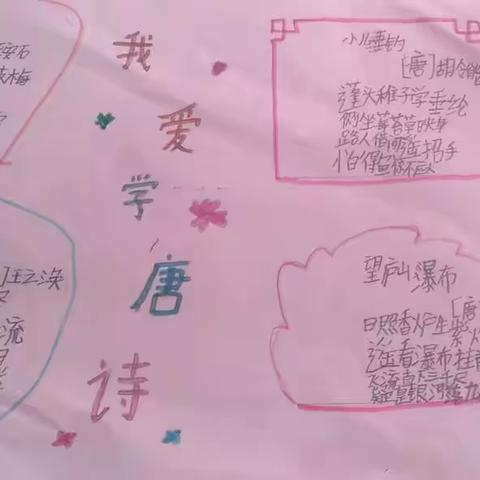 安石
梅
我
爱
学
唐
诗
小儿垂钓
[唐]胡令能
蓬头稚子学垂纶
侧坐莓苔草映身
路人借问遥招手
怕得
]王之涣
流
望庐山瀑布
[唐
日照香炉生紫
遥看瀑布挂
飞流直下三千尺
疑是银河落九